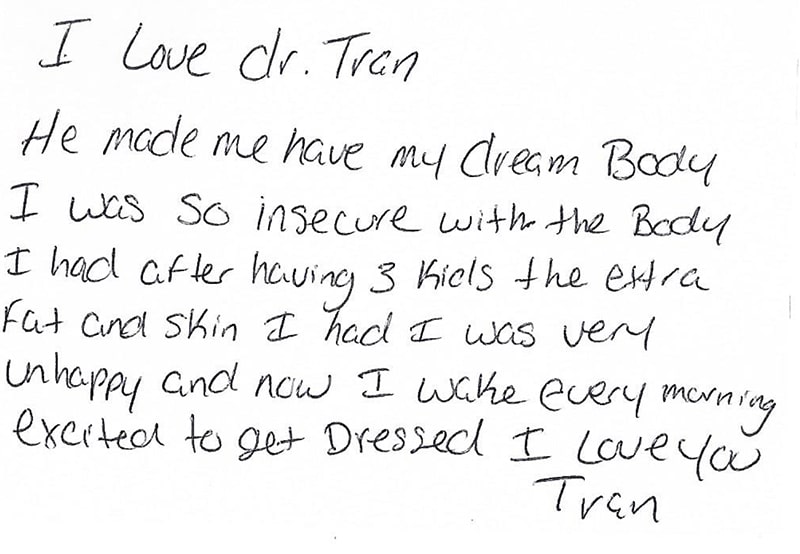 I Love dr. Tran
He made me have my dream Body
I was so insecure with the Body
I had after having 3 kids the extra
Fat and skin I had I was very
unhappy and now I wake every morning
excited to get Dressed I Love you
Tran